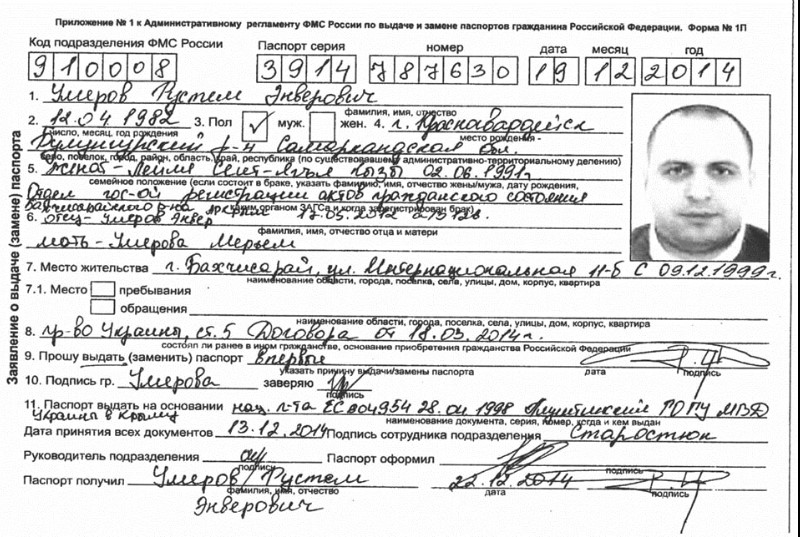 Приложение № 1 к Административному регламенту ФМС России по выдаче и замене паспортов гражданина Российской Федерации. Форма № 1П
Код подразделения ФМС России Паспорт серия номер дата месяц год
910008 3914 787630 19 12 2014
1. Умеров Рустем Энверович
фамилия, имя, отчество
2. 12.04 1982 3. Пол муж. жен. 4. г. Красногвардейск
число, месяц, год рождения место рождения -
р-н Самаркандская обл.
село, поселок, город, район, область, край, республика (по существовавшему административно-территориальному делению)
5. Лейля Сеит кызы 02.06.1991г.
семейное положение (если состоит в браке, указать фамилию, имя, отчество жены/мужа, дату рождения,
Отдел гос-ой регистрации актов гражданского состояния
каким органом ЗАГСа и когда зарегистрирован брак)
Бахчисарайского р-на
6. отец - Умеров Энвер
фамилия, имя, отчество отца и матери
мать - Умерова Мерьем
7. Место жительства г. Бахчисарай, ул. Интернациональная 11-б с 09.12.1999г.
наименование области, города, поселка, села, улицы, дом, корпус, квартира
7.1. Место пребывания
обращения
наименование области, города, поселка, села, улицы, дом, корпус, квартира
8. гр-во Украины, ст. 5 Договора от 18.03.2014г.
состоял ли ранее в ином гражданстве, основание приобретения гражданства Российской Федерации
9. Прошу выдать (заменить) паспорт впервые
указать причину выдачи/замены паспорта дата подпись
10. Подпись гр. Умерова заверяю
11. Паспорт выдать на основании нац. п-та ЕС 004954 28.01 1998 ГО ГУ МВД
наименование документа, серия, номер, когда и кем выдан
Украины в Крыму
Дата принятия всех документов 13.12.2014 Подпись сотрудника подразделения Старостюк
Руководитель подразделения Паспорт оформил
подпись подпись
Паспорт получил Умеров Рустем 22.12.2014
фамилия, имя, отчество дата подпись
Энверович
Заявление о выдаче (замене) паспорта